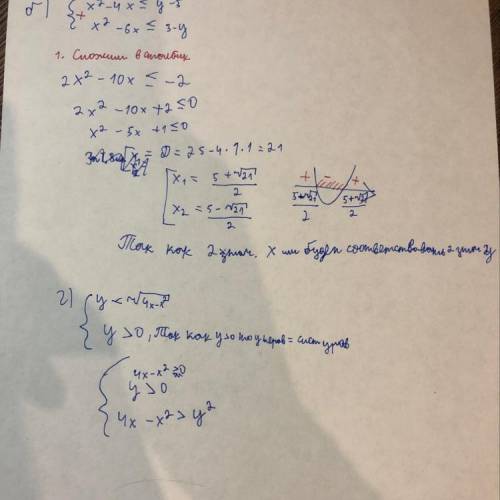 б) { x² - 4x ≤ y - 5
+ x² - 6x ≤ 3 - y
1. Сложим в столбик
2x² - 10x ≤ -2
2x² - 10x + 2 ≤ 0
x² - 5x + 1 ≤ 0
D = 25 - 4 · 1 · 1 = 21
[ x₁ = (5 + √21)/2
x₂ = (5 - √21)/2
+ - +
(5 + √21)/2 (5 + √21)/2
Так как 2 знач. x им будет соответствовать 2 знач y
г) { y < √(4x - x²)
y > 0, Так как y > 0 то
{ 4x - x² ≥ 0
y > 0
4x - x² > y²